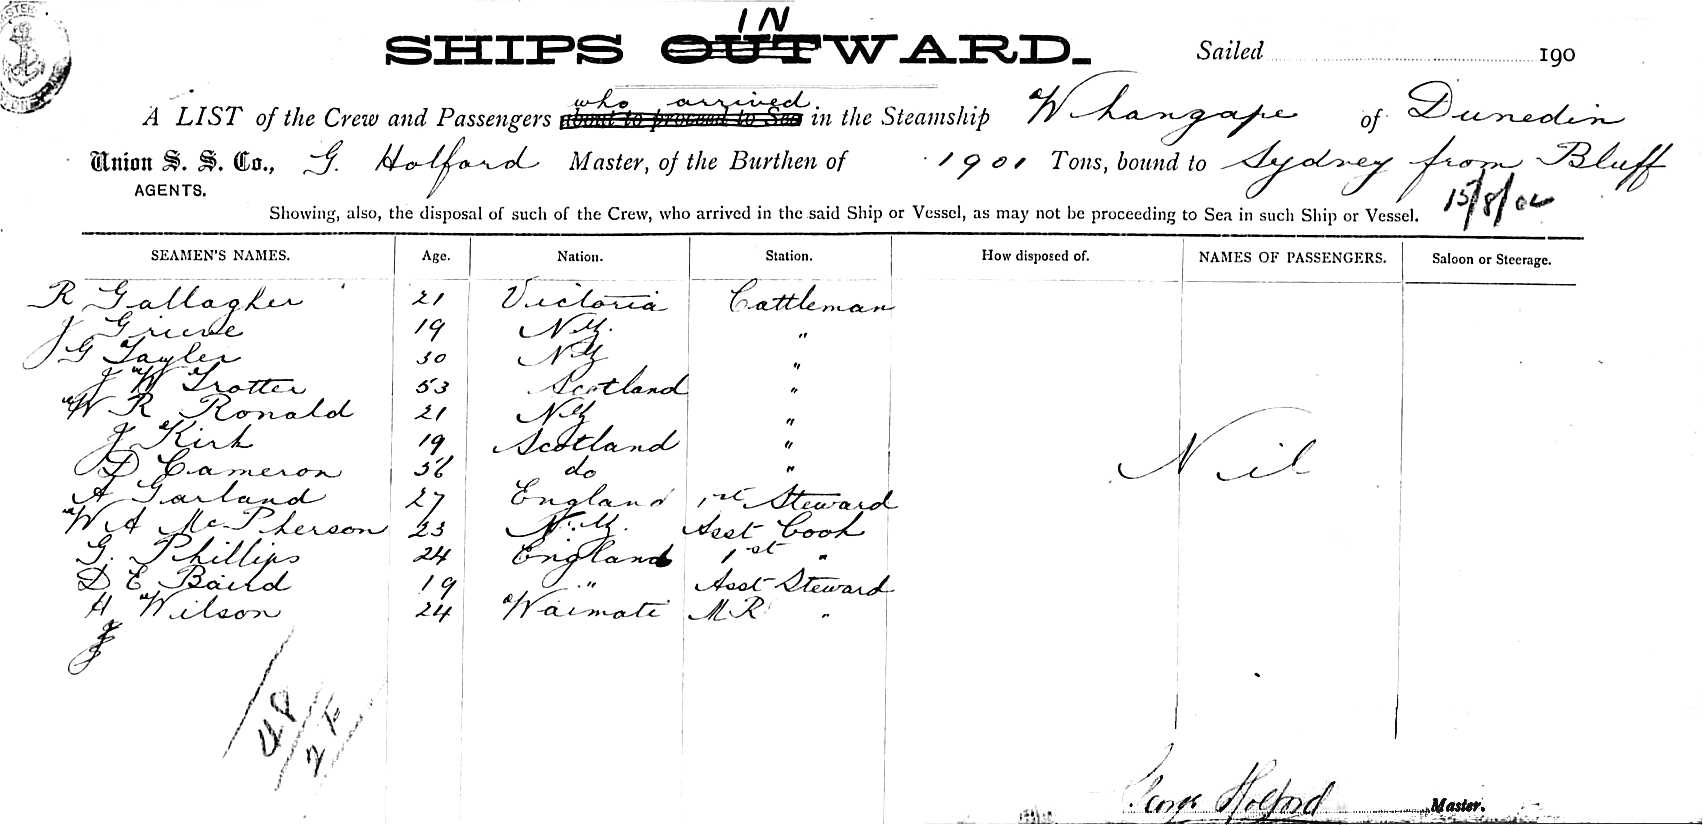 IN
SHIPS OUTWARD. Sailed 190
who arrived
A LIST of the Crew and Passengers about to proceed to Sea in the Steamship Whangape of Dunedin
Union S. S. Co., G. Holford Master, of the Burthen of 1901 Tons, bound to Sydney from Bluff
AGENTS. 15/8/02
Showing, also, the disposal of such of the Crew, who arrived in the said Ship or Vessel, as may not be proceeding to Sea in such Ship or Vessel.
SEAMEN'S NAMES. Age. Nation. Station. How disposed of. NAMES OF PASSENGERS. Saloon or Steerage.
R Gallagher 21 Victoria Cattleman
J Grieve 19 N.Z. "
G Tayler 30 NZ "
J W Trotter 53 Scotland "
W R Ronald 21 NZ "
J Kirk 19 Scotland "
D Cameron 56 do "
Nil
A Garland 27 England 1st Steward
W A McPherson 23 N.Z. Asst Cook
G. Phillips 24 England 1st "
D E Baird 19 " Asst Steward
H Wilson 24 Waimate M R "
48
George Holford Master.